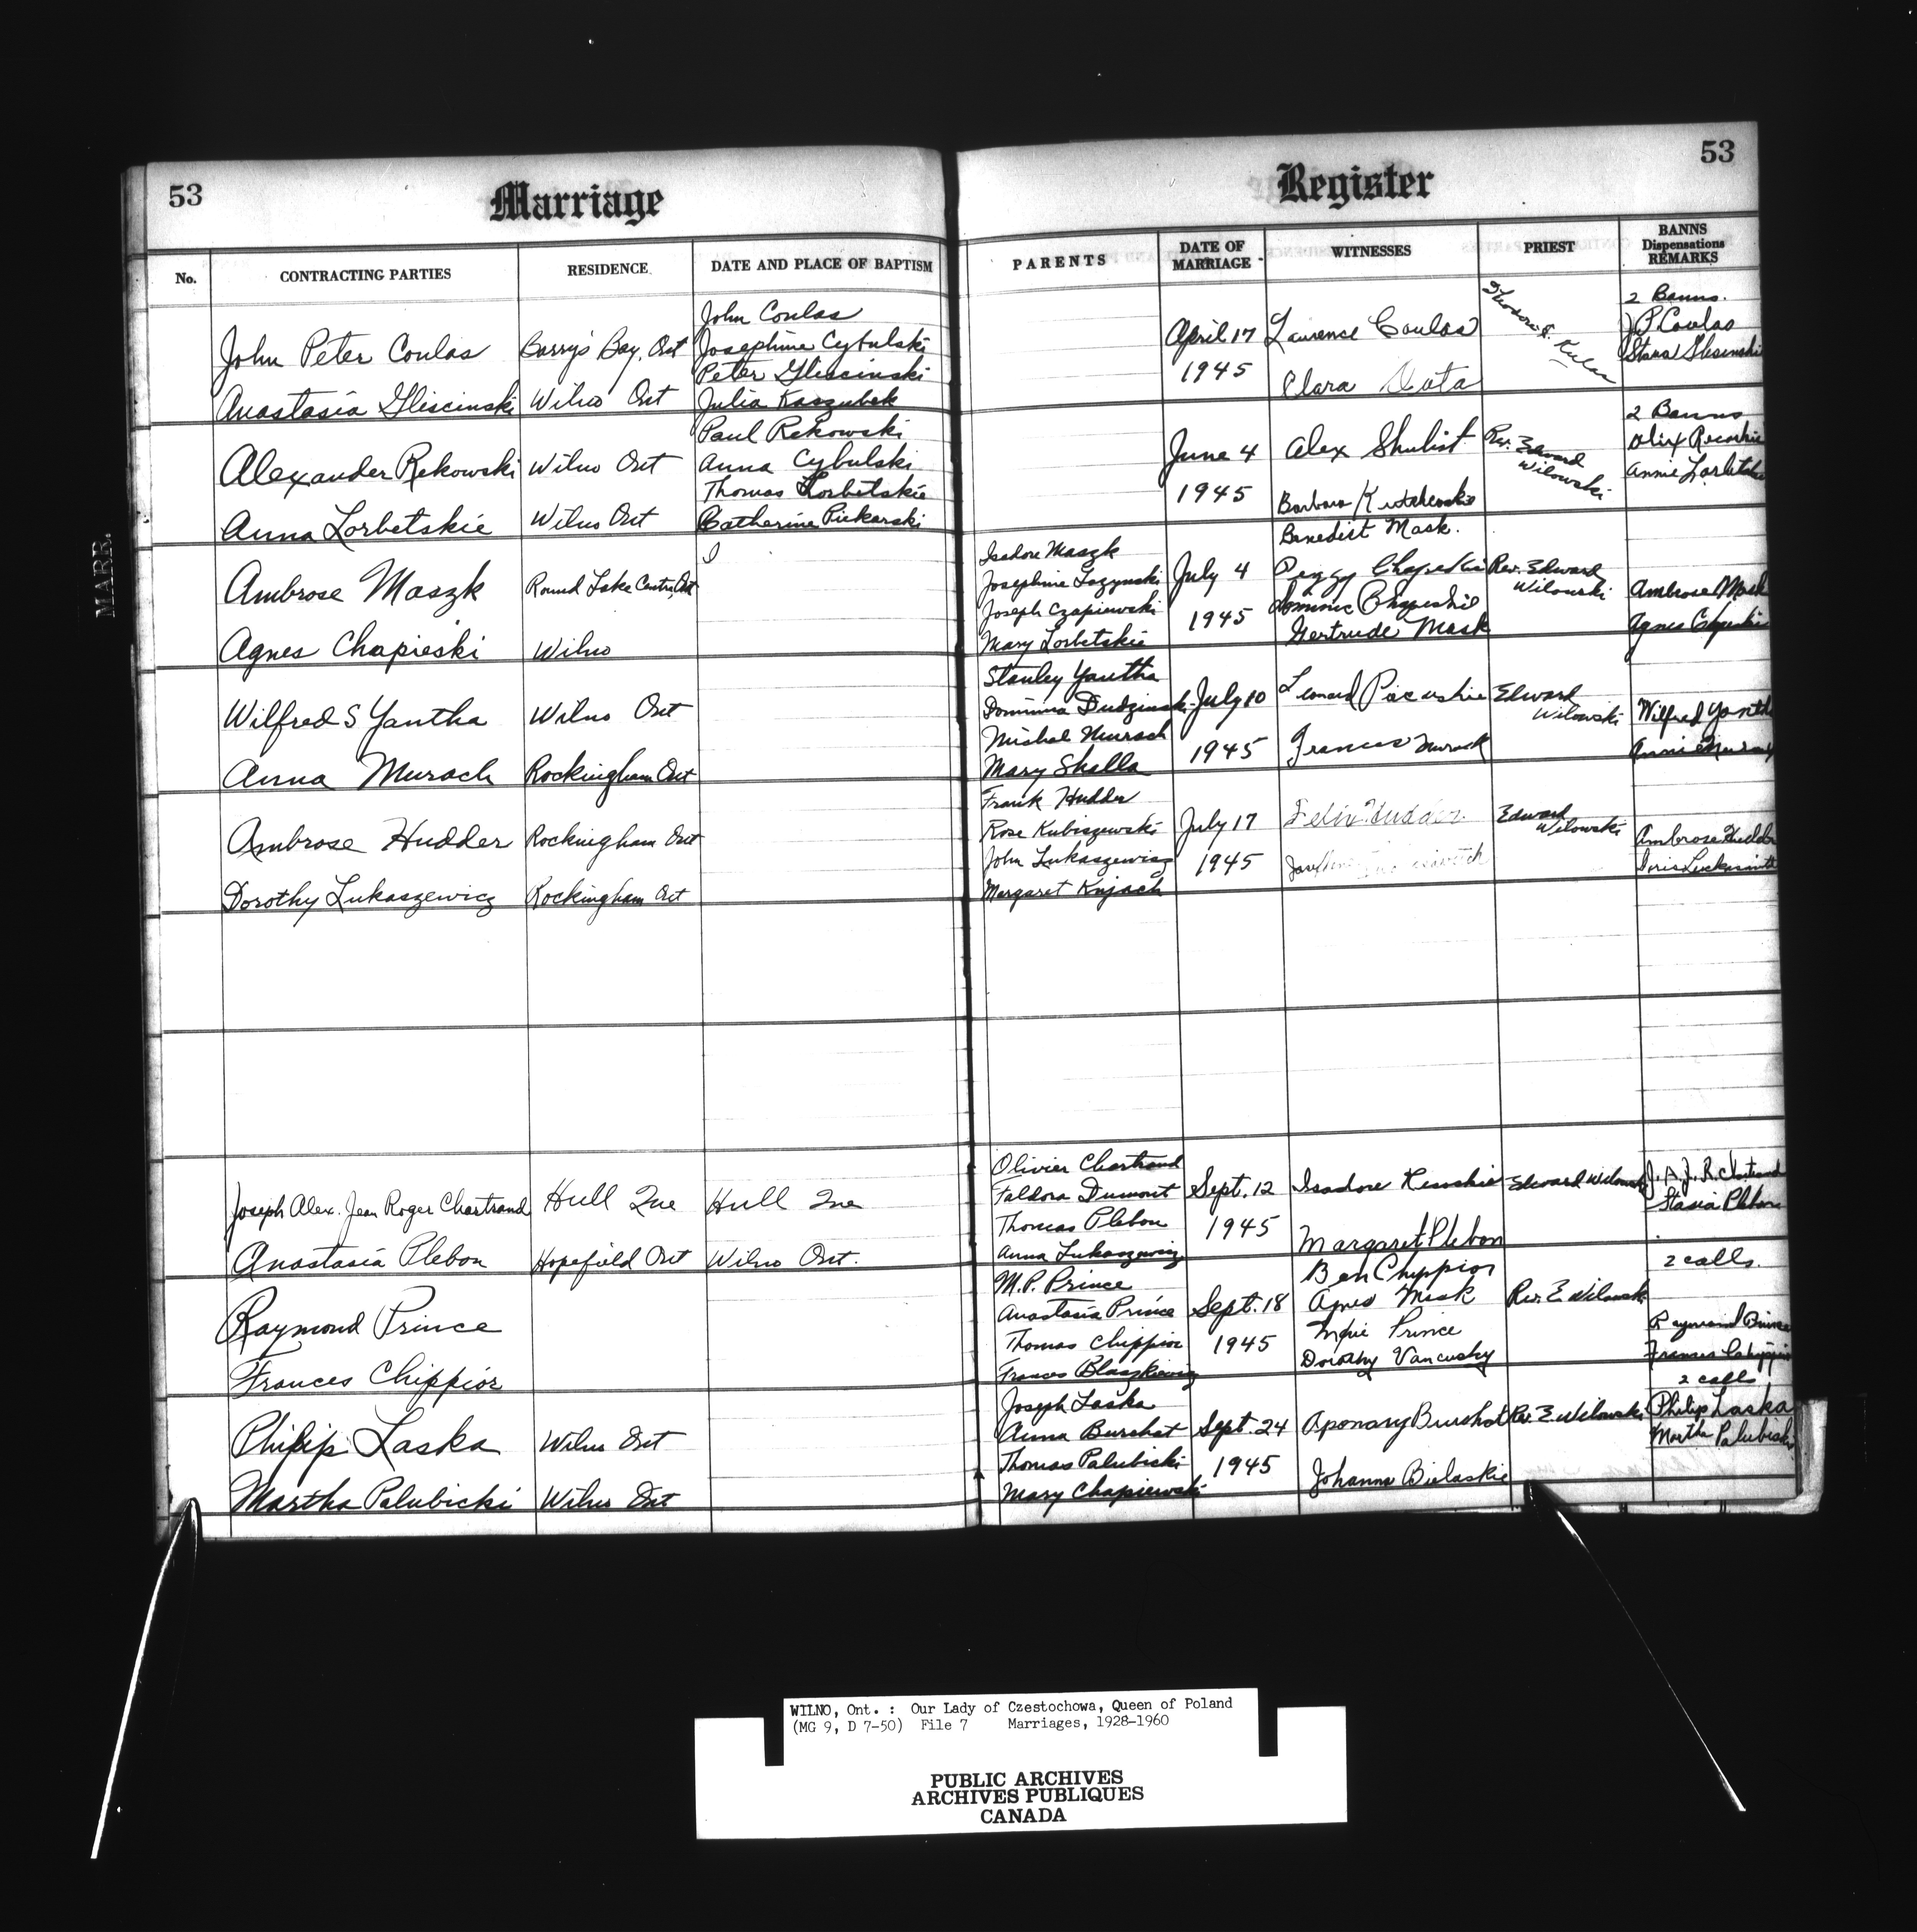 MARR.
53
Marriage
Register
53
No.
CONTRACTING PARTIES
RESIDENCE
DATE AND PLACE OF BAPTISM
PARENTS
DATE OF MARRIAGE
WITNESSES
PRIEST
BANNS
Dispensations
REMARKS
John Peter Coulas
Barry's Bay, Ont
Anastasia Gliscinski
Wilno Ont
John Coulas
Josephine Cybulski
Peter Gliscinski
Julia Kaszubek
April 17
1945
Laurence Coulas
Clara
2 Banns.
J P Coulas
Alexander Rekowski
Wilno Ont
Anna Lorbetskie
Wilno Ont
Paul Rekowski
Anna Cybulski
Thomas Lorbetskie
Catherine Piekarski
June 4
1945
Alex Shulist
Barbara
Rev. Edward
Wilowski
2 Banns
Ambrose Maszk
Round Lake Centre, Ont
Agnes Chapieski
Wilno
Isadore Maszk
Josephine Lozynski
Joseph Czapiewski
Mary Lorbetskie
July 4
1945
Benedict Mask.
Peggy
Dominic
Gertrude Mask
Rev. Edward
Wilowski
Ambrose Mask
Agnes
Wilfred S Yantha
Wilno Ont
Anna Murach
Rockingham Ont
Stanley Yantha
Dominica Dudzinski
Michal Murach
Mary Shalla
July 10
1945
Leonard
Frances Murack
Edward
Wilowski
Wilfred Yantha
Ambrose Hudder
Rockingham Ont
Dorothy Lukaszewicz
Rockingham Ont
Frank Hudder
Rose Kubiszewski
John Lukaszewicz
Margaret Kujach
July 17
1945
Felix Hudder
Edward
Wilowski
Ambrose Hudder
Joseph Alex. Jean Roger Chartrand
Hull Que
Hull Que
Anastasia Plebon
Hopefield Ont
Wilno Ont.
Olivier Chartrand
Faldora Dumont
Thomas Plebon
Anna Lukaszewicz
Sept. 12
1945
Isadore
Margaret Plebon
Edward Wilowski
J. A. J. R. Chartrand
Stasia Plebon
Raymond Prince
Frances Chippior
M.P. Prince
Anastasia Prince
Thomas Chippior
Frances Blaszkiewicz
Sept. 18
1945
Ben Chippior
Agnes Mask
Prince
Dorothy Vancusky
Rev. E Wilowski
2 calls.
Raymond Prince
Frances Chippior
Philip Laska
Wilno Ont
Martha Palubicki
Wilno Ont
Joseph Laska
Anna Burchat
Thomas Palubicki
Mary Chapiewski
Sept. 24
1945
Aponary Burchat
Johanna Bielaskie
Rev. E. Wilowski
2 calls
Philip Laska
Martha Palubicki
WILNO, Ont. : Our Lady of Czestochowa, Queen of Poland
(MG 9, D 7-50) File 7 Marriages, 1928-1960
PUBLIC ARCHIVES
ARCHIVES PUBLIQUES
CANADA